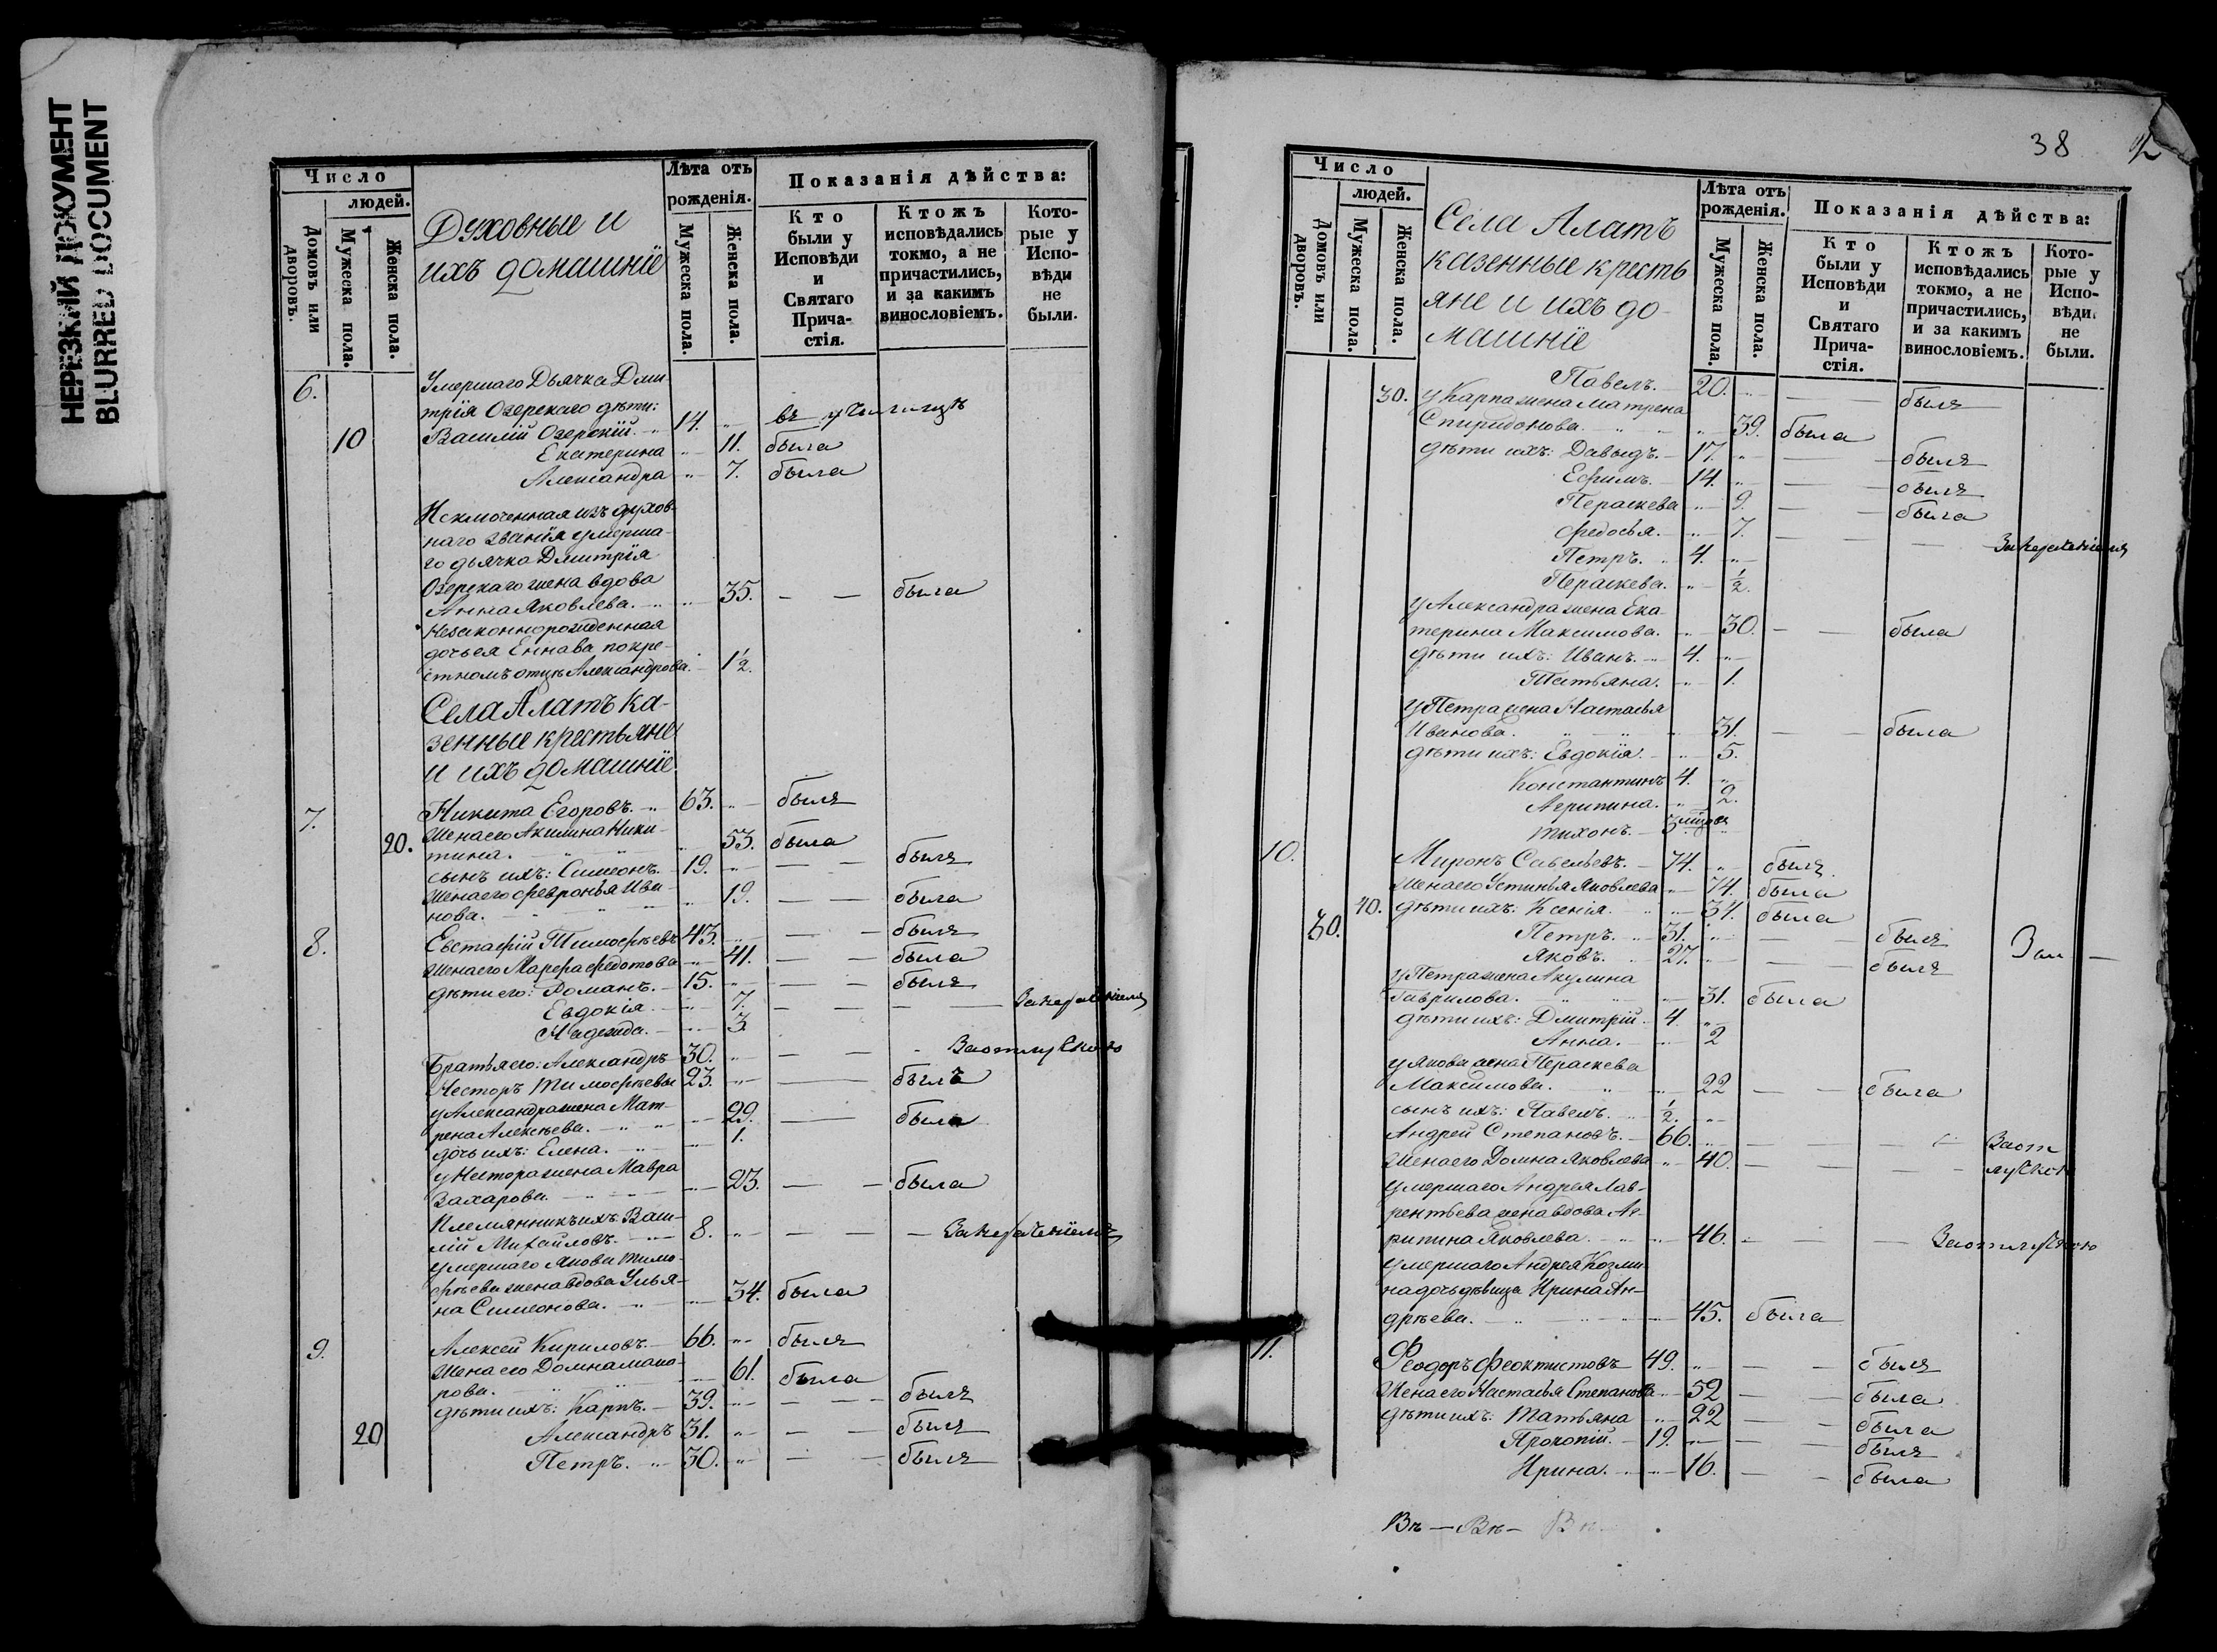 НЕРЕЗКИЙ ДОКУМЕНТ
BLURRED DOCUMENT
Число
людей.
Домовъ или дворовъ.
Мужеска пола.
Женска пола.
Духовные и
ихъ домашніе
Лѣта отъ
рожденія.
Мужеска пола.
Женска пола.
Показанія дѣйства:
Кто
были у
Исповѣди
и
Святаго
Прича-
стія.
Ктожъ
исповѣдались
токмо, а не
причастились,
и за какимъ
винословіемъ.
Кото-
рые у
Испо-
вѣди
не
были.
6. Умершаго Дьячка Дми-
трія Озерскаго дѣти:
10 Василій Озерскій. 14. въ училищѣ
Екатерина 11. была
Александра 7. была
Исключенная изъ духов-
наго званія умерша-
го дьячка Дмитрія
Озерскаго жена вдова
Анна Яковлева. 35. была
Незаконнорожденная
дочь ея по кре-
стномъ отцѣ Александрова. 1 1/2.
Села Алатъ ка-
зенные крестьяне
и ихъ домашніе.
7. Никита Егоровъ. 63. былъ
20. Жена его Акилина Ники-
тина. 53. была
сынъ ихъ: Симеонъ. 19. былъ
Жена его Февронья Ива-
нова. 19. была
8. Евстафій Тимофѣевъ 43. былъ
Жена его Марфа Федотова 41. была
дѣти его: Романъ. 15. былъ
Евдокія. 7. За нераченіемъ
Надежда. 3.
Братья его: Александръ 30. За отлучкою
Несторъ Тимофѣевы 23. былъ
у Александра жена Мат-
рена Алексѣева. 29. была
дочь ихъ: Елена. 1.
у Нестора жена Мавра
Захарова. 23. была
Племянникъ ихъ: Васи-
лій Михайловъ. 8. За нераченіемъ
умершаго Якова Тимо-
фѣева жена вдова Улья-
на Симеонова. 34. была
9. Алексей Кириловъ. 66. былъ
Жена его Домна Мано-
рова. 61. была
дѣти ихъ: Карпъ. 39. былъ
20 Александръ 31. былъ
Петръ. 30. былъ
38
Число
людей.
Домовъ или дворовъ.
Мужеска пола.
Женска пола.
Села Алатъ
казенные кресть
яне и ихъ до-
машніе
Лѣта отъ
рожденія.
Мужеска пола.
Женска пола.
Показанія дѣйства:
Кто
были у
Исповѣди
и
Святаго
Прича-
стія.
Ктожъ
исповѣдались
токмо, а не
причастились,
и за какимъ
винословіемъ.
Кото-
рые у
Испо-
вѣди
не
были.
Павелъ. 20. былъ
30. у Карпа жена Матрена
Спиридонова. 39. была
дѣти ихъ: Давыдъ. 17. былъ
Ефимъ. 14. былъ
Пераскева 9. была
Федосья. 7. За нераченіемъ
Петръ. 4.
Пераскева. 1/2.
у Александра жена Ека-
терина Максимова. 30. была
дѣти ихъ: Иванъ. 4.
Татьяна. 1.
у Петра жена Настасья
Иванова. 31. была
дѣти ихъ: Евдокія. 5.
Константинъ 4.
Агрипина. 2.
Тихонъ. 3
10. Миронъ Савельевъ. 74. былъ
Жена его Устинья Яковлева 74. была
40. дѣти ихъ: Ксенія. 34. была
30. Петръ. 31. былъ
Яковъ. 27. былъ
у Петра жена Акулина
Гаврилова. 31. была
дѣти ихъ: Дмитрій. 4.
Анна. 2
у Якова жена Пераскева
Максимова. 22 была
сынъ ихъ: Павелъ. 1/2.
Андрей Степановъ. 66. За от
Жена его Домна Яковлева 40. лучкою
умершаго Андрея Лав-
рентьева жена вдова Аг-
рипина Яковлева. 46. За отлучкою
умершаго Андрея Козми-
на дочь дѣвица Ирина Ан-
дрѣева. 45. была
11. Феодоръ Феоктистовъ 49. былъ
Жена его Настасья Степанова 52 была
дѣти ихъ: Татьяна 22 была
Прокопій. 19. былъ
Ирина. 16. была
Въ — Въ —